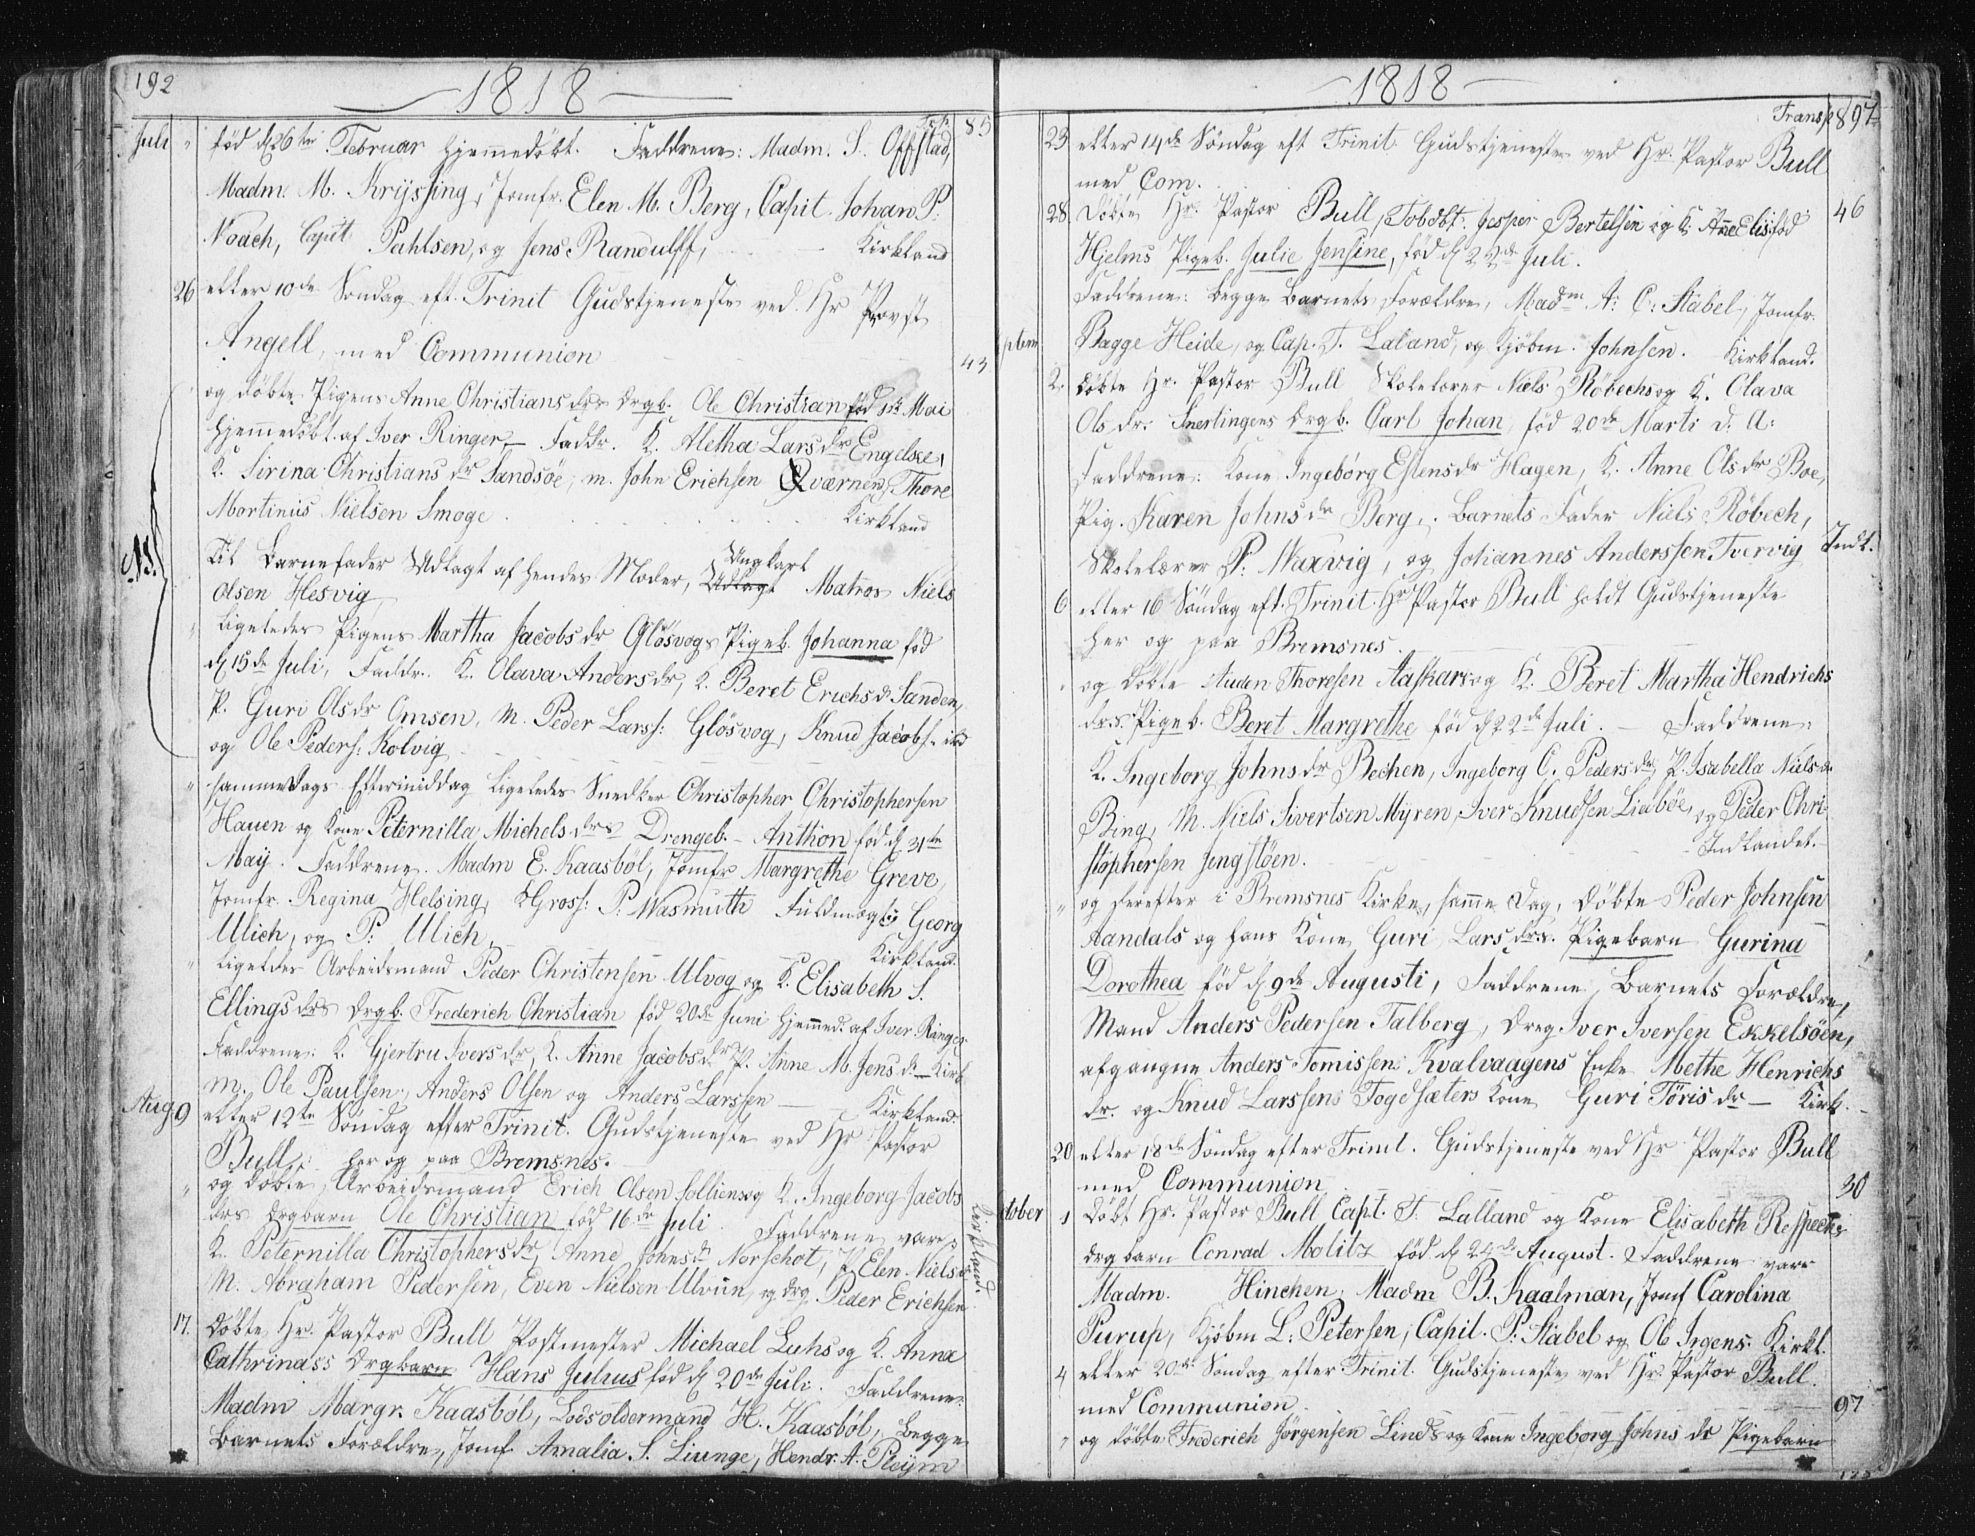 192
1818
Juli " föd d 26te Februar hjemedöbt. Faddrene: Madm. S. Offstad,
Trsp. 85
Madm. M. Kryssing, Jomfr. Elen M. Berg, Capit. Johan P:
Noach, Capit Pahlsen, og Jens Randulff, Kirkland
26 eller 10de Söndag eft. Trinit Gudstjeneste ved Hr Provst
Angell, med Communion 43
og döbte Pigens Anne Christiansdrs drgb. Ole Christian föd 1ste Mai
hjemedöbt af Iver Ringer, - Faddr. K. Aletha Larsdr Engelsee,
K. Sirina Christiansdr Sandsöe, m. John Erichsen Qværnen, Thore
Mortinus Nielsen Smoge Kirkland
NB. Til Barnefader Udlagt af hendes Moder, Ungkarl Matros Niels
Olsen Hesvig
" Ligeledes Pigens Martha Jacobsdr Glösvogs Pigeb. Johanna föd
d 15de Juli, Faddr. K. Olava Andersdr, K. Beret Erichsdr Sanden,
P. Guri Olsdr Omsen, M. Peder Larss: Glösvog, Knud Jacobs.
og Ole Peders: Kolvig
" samme Dags Eftermiddag Ligeledes Snedker Christopher Christophersen
Hauen og Kone Peternilla Michelsdrs Drengeb. - Anthon föd d 31te
May. Faddrene. Madm E. Kaasböl, Jomfr Margrethe Greve,
Jomfr. Regina Helsing, Gross: P: Wasmuth Fuldmægtig Georg
Ulich, og P: Ulich Kirkland.
" Ligeledes Arbeidsmand Peder Christensen Ulvog og K. Elisabeth S.
Ellingsdrs drgb. Frederich Christian föd 20de Juni hjemmed. af Iver Ringer
Faddrene: K. Gjertru Iversdr, K. Anne Jacobsdr, P. Anne M. Jensdr - Kirk
m. Ole Paulsen, Anders Olsen og Anders Larssen Kirkland.
Aug 9 eller 12te Söndag efter Trinit. Gudstjeneste ved Hr Pastor
Bull, her og paa Bremsnes.
" og döbte Arbeidsmand Erich Olsen Solliens og K. Ingeborg Jacobs
drs drgbarn Ole Christian föd 16de Juli Faddrene vare:
K. Peternilla Christophersdr, Anne Johnsdr Norschot, P Elen Nielsdr
M. Abraham Pedersen, Even Nielsen Ulvun, og drg Peder Erichsen
Kirkland.
17. Döbte Hr. Pastor Bull Postmester Michael Luhs og K. Anna
Cathrinass drgbarn Hans Julius föd d 20de Juli. Faddrene:
Madm Margr. Kaasböl, Lodsoldermand H. Kaasböl, begge
Barnets Forældre, Jomf. Amalia S. Liunge, Hendr. A. Pleym
1818
Transp 897
23 eller 14de Söndag eft Trinit. Gudstjeneste ved Hr. Pastor Bull
med Com.
28 Döbte Hr. Pastor Bull, Tobdbt. Jesper Bertelsen og K: Anne Elis: föd 46
Hjelms Pigeb. Julie Jensine, föd d 22de Juli.
Faddrene: begge Barnets Forældre, Madm A: C: Stabel, Jomfr.
Bagge Heide, og Cap. T. Laland, og Kjöbm. Johnsen. Kirkland.
ptbm 2. döbte Hr. Pastor Bull Skolelærer Niels Röbechs og K. Olava
Olsdr. Snertingens drgb. Carl Johan, föd 20de Marti d. A:
Faddrene: Kone Ingebörg Estensdr Hagen, K. Anne Olsdr Boe,
Pig. Karen Johnsdr Berg, Barnets Fader Niels Röbech,
Skolelærer P: Waxvig, og Johannes Anderssen Tvervig Indl.
6 eller 16 Söndag eft. Trinit. Hr Pastor Bull holdt Gudstjeneste
her og paa Bremsnes
" og döbte Auden Thoresen Aaskars og K. Beret Martha Hendrichs
drs Pigeb. Beret Margrethe föd d 22de Juli. - Faddrene:
K. Ingeborg Johnsdr Bechen, Ingeborg C. Pedersdr, P. Isabella Nielsdr
Bing, M. Niels Sivertsen Myren, Iver Knudsen Liaböe, og Peder Chri-
stophersen Jengstöen. Indlandet.
" og derefter i Bremsnes Kirke, samme Dag, döbte Peder Johnsen
Aandals og hans Kone Guri Larsdrs. Pigebarn Gurina
Dorothea föd d 9de Augusti, Faddrene, Barnets Forældre,
Mand Anders Pedersen Talberg, dreg Iver Iversen Ekkelsöen,
afgangne Anders Tomissen Kvalvaagens Enke Methe Henrichs
dr. og Knud Larssens Fogdsæters Kone Guri Törisdr - Kirk.
20 eller 18de Söndag efter Trinit. Gudstjeneste ved Hr Pastor Bull
med Communion 30
ctober 1 Döbt Hr. Pastor Bull Capt. T. Lalland og Kone Elisabeth Respechs
drgbarn Conrad Molitz föd d 24de August. Faddrene vare
Madm. Hinchen, Madm B. Kaalman, Jomf Carolina
Purup, Kjöbm L: Petersen, Capit. P: Stabel og Ol Irgens. Kirkl.
4 eller 20de Söndag efter Trinit. Gudstjeneste ved Hr: Pastor Bull.
med Communion 97
" og döbte Frederich Jörgensen Linds og Kone Ingeborg Johnsdr Pigebarn